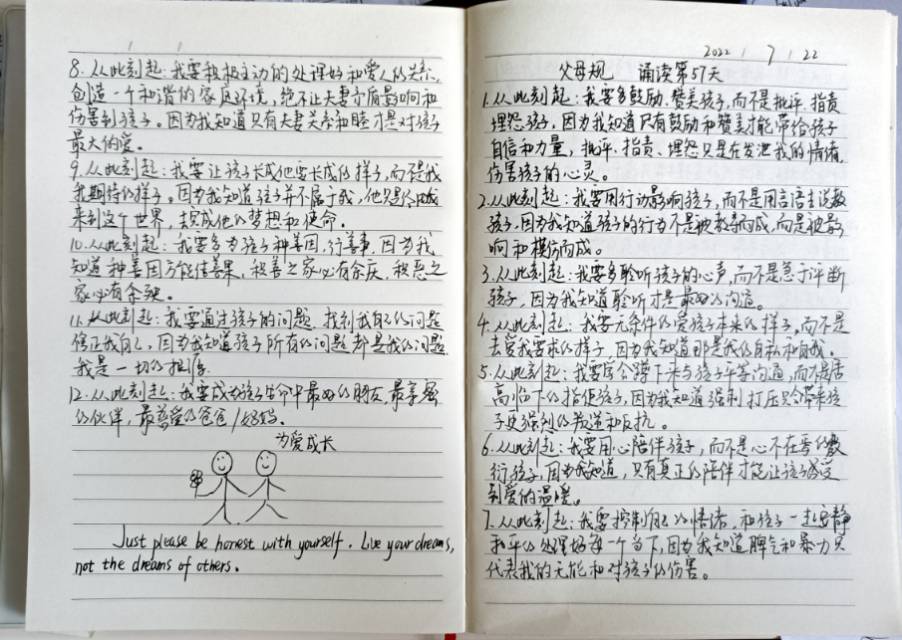 8.从此刻起:我要积极主动的处理好和爱人的关系,
创造一个和谐的家庭环境,绝不让夫妻矛盾影响和
伤害到孩子。因为我知道只有夫妻关系和睦才是对孩子
最大的爱。
9.从此刻起:我要让孩子长成他要长成的样子,而不是我
我期待的样子。因为我知道孩子并不属于我,他只是
来到这个世界,去完成他的梦想和使命。
10.从此刻起:我要多为孩子种善因,行善事,因为我
知道种善因方能结善果,积善之家必有余庆,积恶之
家必有余殃。
11.从此刻起:我要通过孩子的问题,找到我自己的问题
修正我自己,因为我知道孩子所有的问题都是我的问题
我是一切的根源
12.从此刻起:我要成为孩子生命中最好的朋友,最亲密
的伙伴,最慈爱的爸爸/妈妈。
为爱成长
Just please be honest with yourself. Live your dreams,
not the dreams of others.
2022 / 7 / 22
父母规 诵读第57天
1.从此刻起:我要多鼓励、赞美孩子,而不是批评、指责
埋怨孩子,因为我知道只有鼓励和赞美才能带给孩子
自信和力量,批评、指责、埋怨只是在发泄我的情绪,
伤害孩子的心灵。
2.从此刻起:我要用行动影响孩子,而不是用言语去说教
孩子,因为我知道孩子的行为不是被教导而成,而是被影
响和模仿而成。
3.从此刻起:我要多聆听孩子的心声,而不是急于评断
孩子,因为我知道聆听才是最好的沟通。
4.从此刻起:我要无条件的爱孩子本来的样子,而不是
去爱我要求的样子,因为我知道那是我的自私和自我。
5.从此刻起:我要学会蹲下来与孩子平等沟通,而不是居
高临下的指使孩子,因为我知道强制打压只会带来孩
子更强烈的叛逆和反抗。
6.从此刻起:我要用心陪伴孩子,而不是心不在焉的敷
衍孩子,因为我知道,只有真正的陪伴才能让孩子感受
到爱的温暖。
7.从此刻起:我要控制自己的情绪,和孩子一起安静
和平的处理好每一个当下,因为我知道脾气和暴力只
代表我的无能和对孩子的伤害。